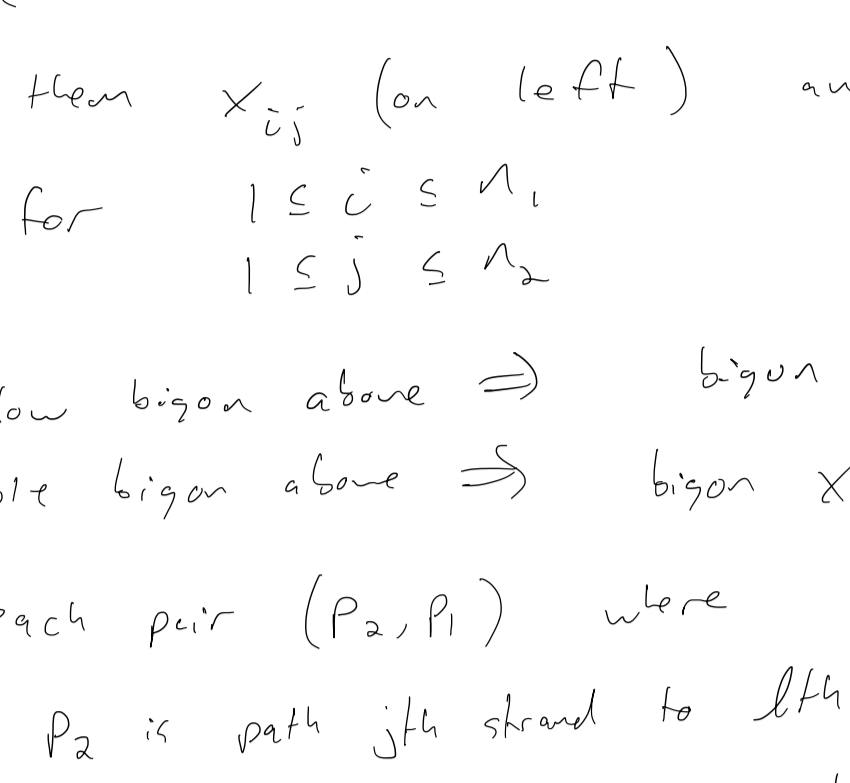 them x_{ij} (on left) an
for 1 ≤ i ≤ n_1
1 ≤ j ≤ n_2
low bigon above ⇒ bigon
ple bigon above ⇒ bigon x
each pair (P_2, P_1) where
P_2 is path jth strand to lth